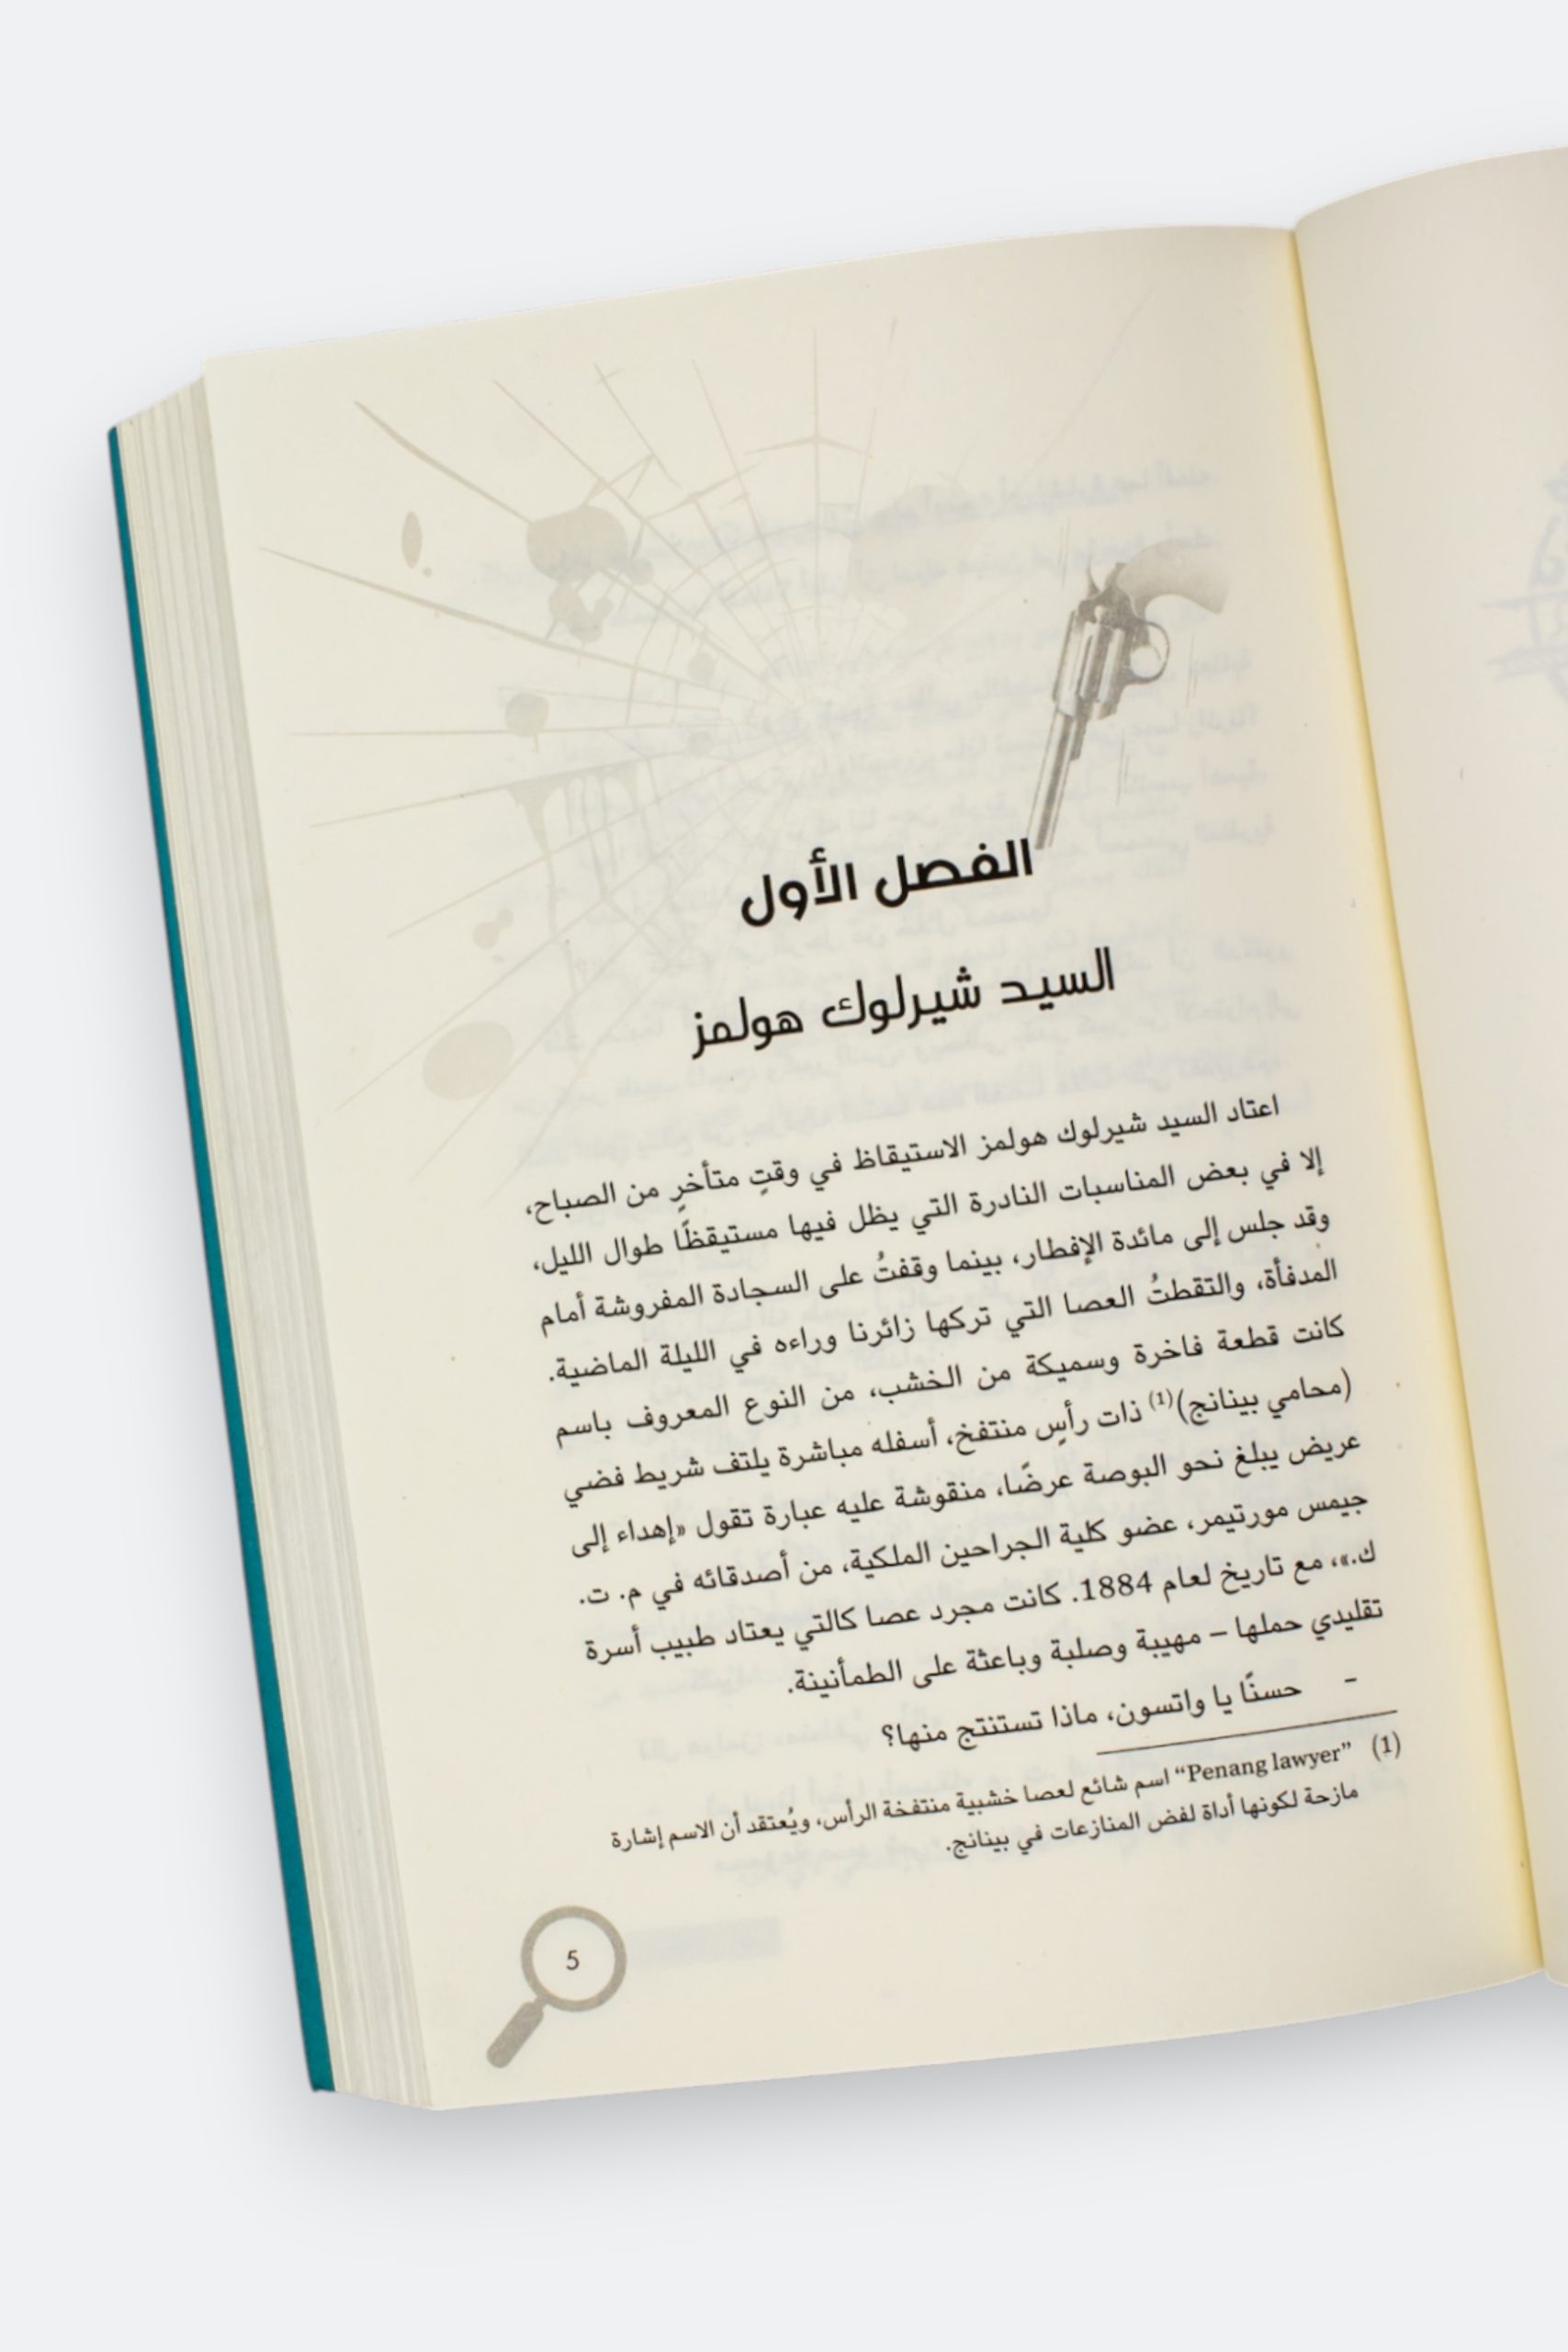 الفصل الأول
السيد شيرلوك هولمز
اعتاد السيد شيرلوك هولمز الاستيقاظ في وقتٍ متأخرٍ من الصباح،
إلا في بعض المناسبات النادرة التي يظل فيها مستيقظًا طوال الليل،
وقد جلس إلى مائدة الإفطار، بينما وقفتُ على السجادة المفروشة أمام
المدفأة، والتقطتُ العصا التي تركها زائرنا وراءه في الليلة الماضية.
كانت قطعة فاخرة وسميكة من الخشب، من النوع المعروف باسم
(محامي بينانج)(1) ذات رأسٍ منتفخ، أسفله مباشرة يلتف شريط فضي
عريض يبلغ نحو البوصة عرضًا، منقوشة عليه عبارة تقول «إهداء إلى
جيمس مورتيمر، عضو كلية الجراحين الملكية، من أصدقائه في م. ت.
ك.»، مع تاريخ لعام 1884. كانت مجرد عصا كالتي يعتاد طبيب أسرة
تقليدي حملها – مهيبة وصلبة وباعثة على الطمأنينة.
- حسنًا يا واتسون، ماذا تستنتج منها؟
(1) "Penang lawyer" اسم شائع لعصا خشبية منتفخة الرأس، ويُعتقد أن الاسم إشارة
مازحة لكونها أداة لفض المنازعات في بينانج.
5